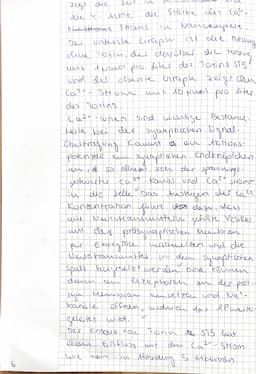 zeigt die Zeit in
die y-Achse die Stärke des Ca²⁺-
Stroms in
Der unterste Graph ist die Messung
ohne Toxin, der darüber die Messung
mit 1 µmol pro liter des Toxins STS
und der oberste Graph zeigt den
Ca²⁺-Strom mit 10 µmol pro liter
des Toxins.
Ca²⁺-Ionen sind wichtige Bestand-
teile bei der synaptischen Signal-
übertragung. Kommt ein Aktions-
potenzial am synaptischen Endknöpfchen
an, so öffnet sich der spannungs-
gesteuerte Ca²⁺ Kanal und Ca²⁺ strömt
in die Zelle. Das Ansteigen der Ca²⁺
Konzentration führt dazu, dass
mit Neurotransmittern gefüllte Vesikel
mit der präsynaptischen Membran
per Exozytose und die
Neurotransmitter in den synaptischen
Spalt freigesetzt werden. Diese können
dann an Rezeptoren an der post-
syn. Membran ansetzen und Na⁺-
Kanäle öffnen, wodurch das AP weiter-
geleitet wird.
Der Einsatz von Toxin STS hat
einen Einfluss auf den Ca²⁺-Strom
wie man in Abbildung 5 erkennen
6